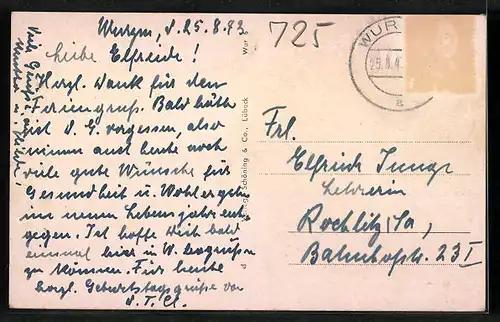 Wurzen, d. 25.8.43
725
WUR
Liebe Elfriede!
Herzl. Dank für den
Feriengruß. Bald hätte
ist d. G. vergessen, also
nimm auch heute noch
viele gute Wünsche für
Gesundheit u. Wohlergehn
im neuen Lebensjahr ent-
gegen. Ich hoffe Dich bald
einmal hier in W. begrüßen
zu können. Für heute
herzl. Geburtstagsgrüße von
d. T. Cl.
Viele Grüße
Mutter u.
Schöning & Co., Lübeck
Frl.
Elfriede Junge
Lehrerin
Rochlitz/Sa,
Bahnhofstr. 23 I